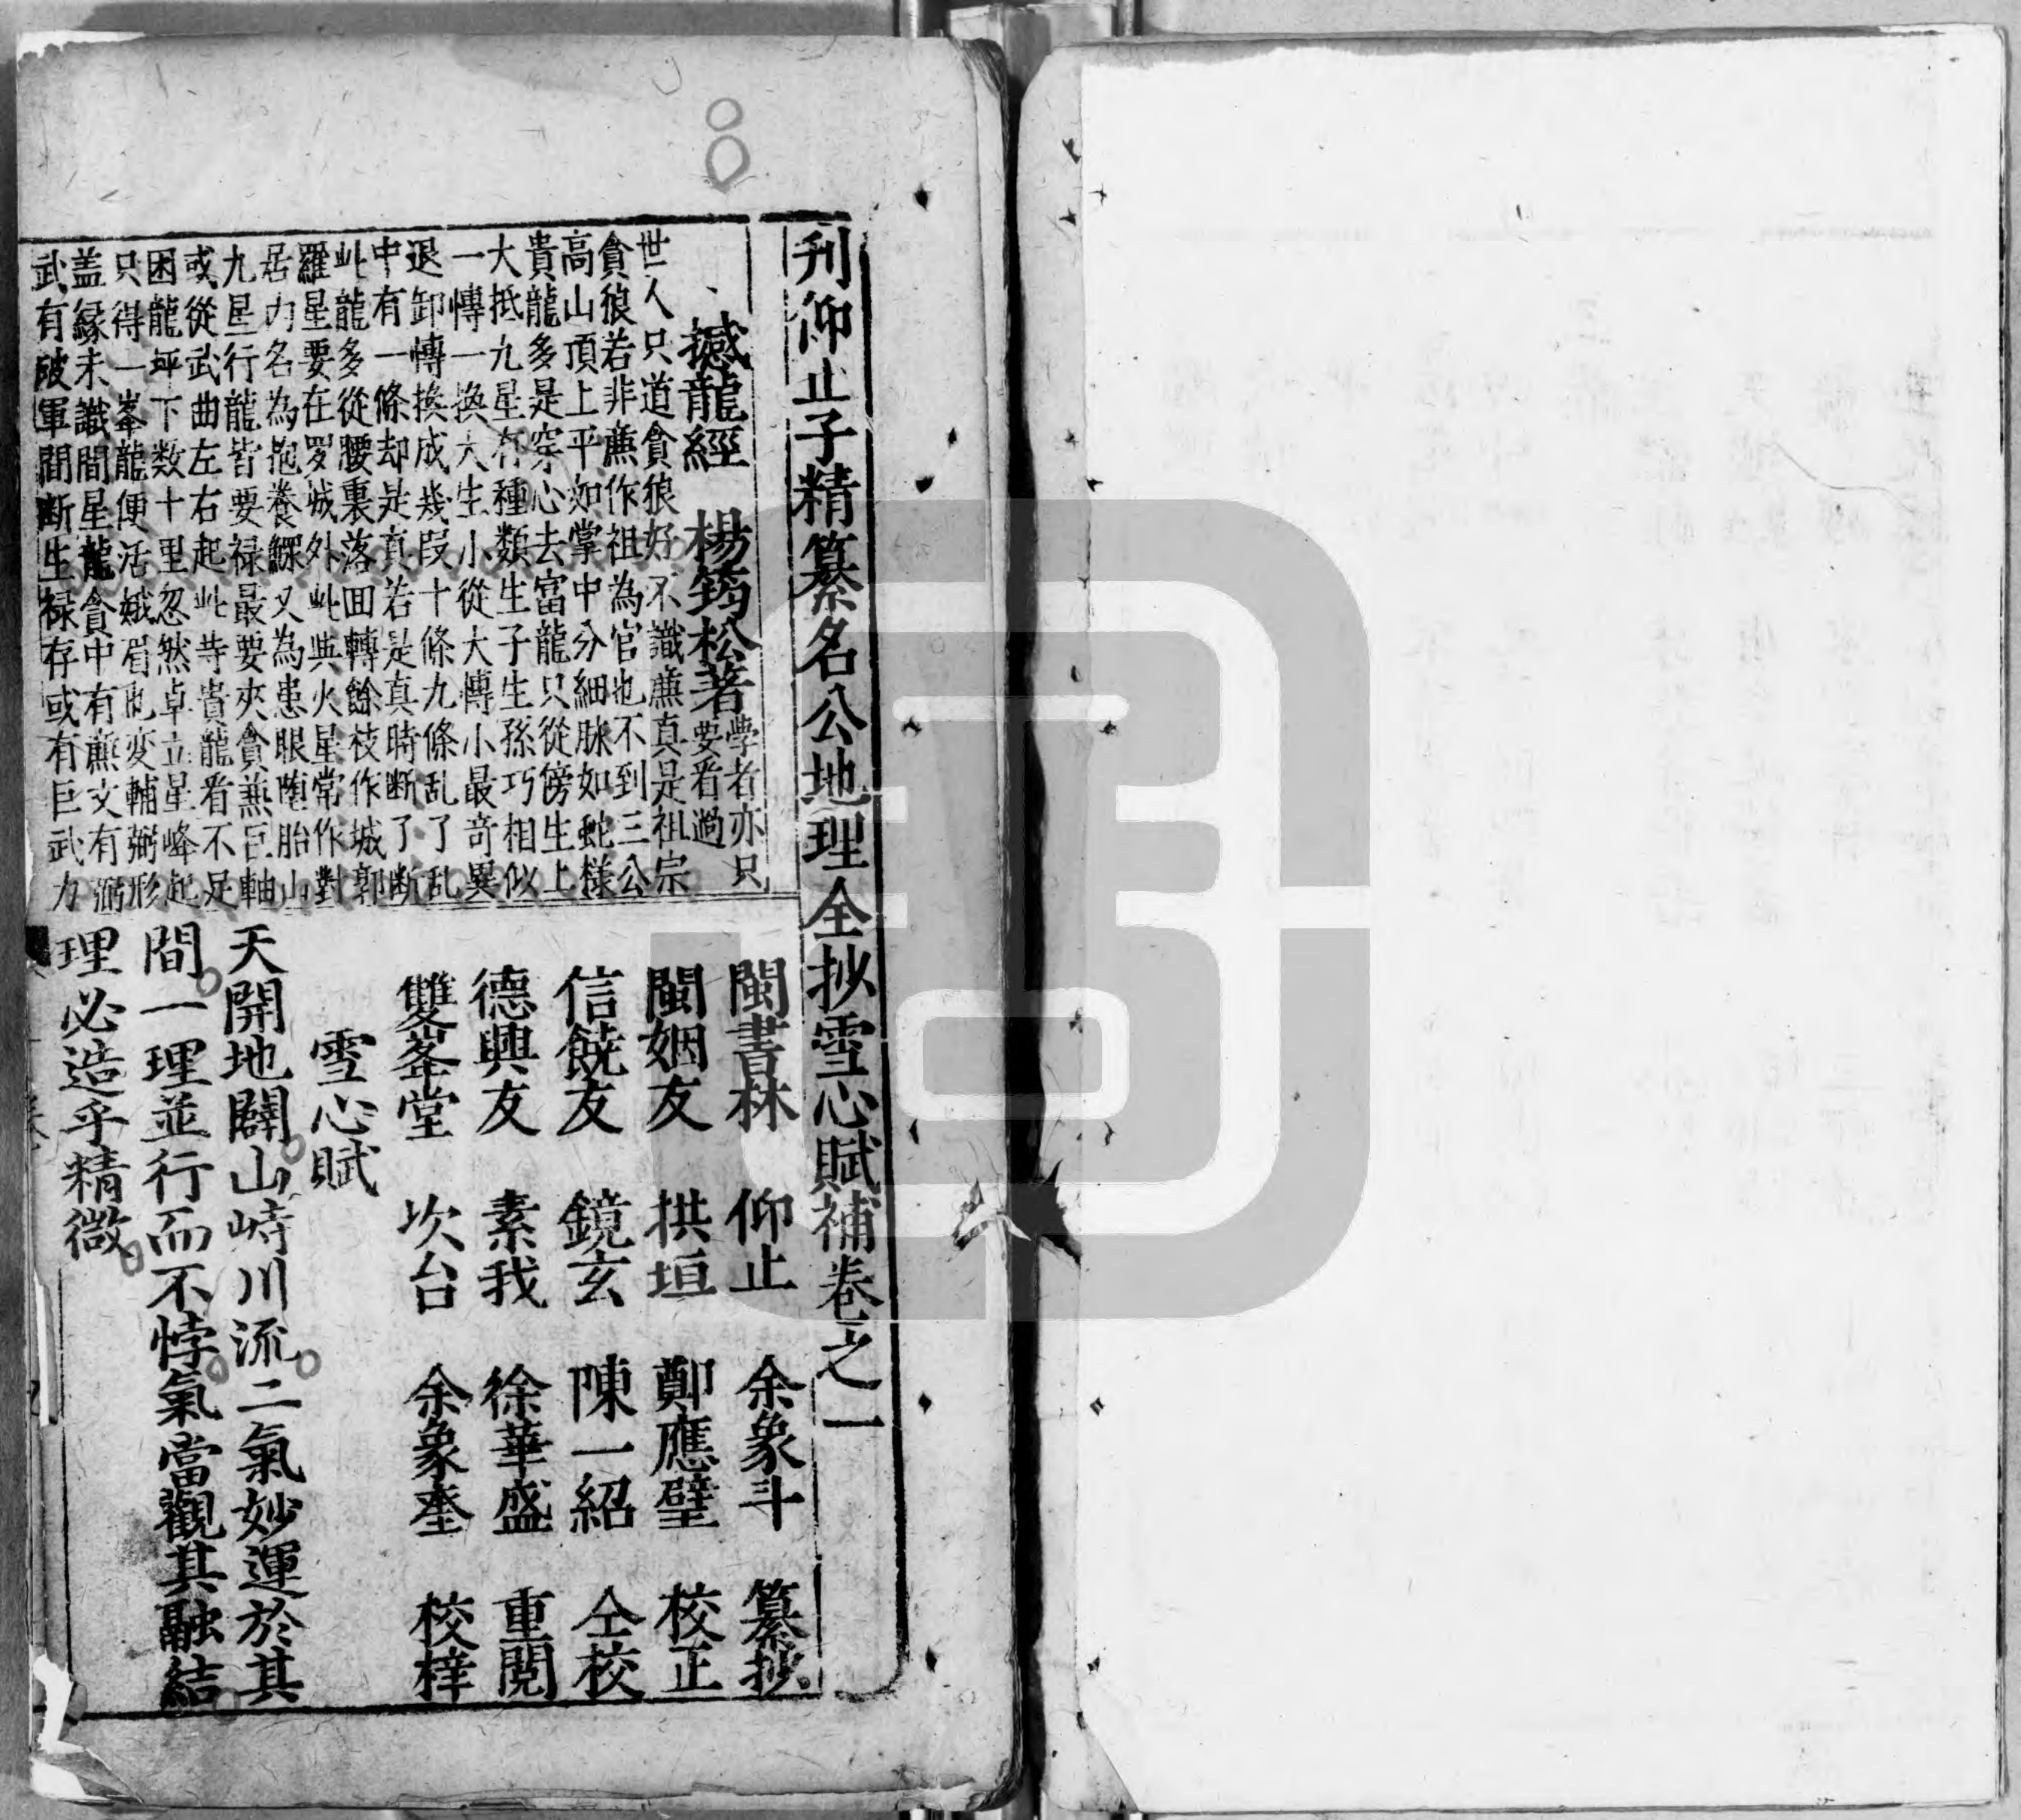 刋仰止子精纂名公地理全抄雪心賦補卷之一
撼龍經　楊筠松著
學者亦只
要看過
世人只道貪狼好不識廉真是祖宗
貪狼若非廉作祖為官也不到三公
高山頂上平如掌中分細脉如蛇様
貴龍多是穿心去富龍只從傍生上
大抵九星有種類生子生孫巧相似
一博一換大生小從大博小最竒異
退卸博換成幾段十條九條乱了乱
中有一條却是真若是真時断了断
此龍多從腰裏落囬轉餘枝作城郭
羅星要在罗城外此與火星常作對
居内名為抱養鰥又為患眼墮胎山
九星行龍皆要禄最要夾貪兼巨軸
或從武曲左右起此等貴龍看不足
困龍坪下数十里忽然卓立星峰起
只得一峯龍便活娥眉也变輔弼形
盖緑未識間星龍貪中有廉文有弼
武有破軍間断生禄存或有巨武力
閩書林　仰止　余象斗　纂抄
閩姻友　拱垣　鄭應璧　校正
信饒友　鏡玄　陳一紹　仝校
德興友　素我　徐華盛　重閲
雙峯堂　坎台　余象奎　校梓
雪心賦
天開地闢山峙川流二氣妙運於其
間一理並行而不悖氣當觀其融結
理必造乎精微